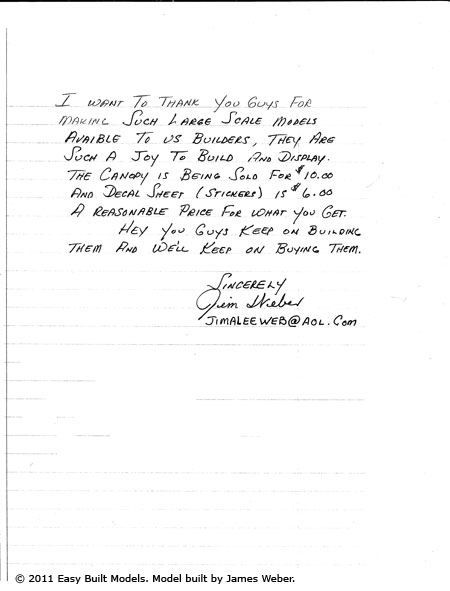 I WANT TO THANK YOU GUYS FOR
MAKING SUCH LARGE SCALE MODELS
AVAIBLE TO US BUILDERS, THEY ARE
SUCH A JOY TO BUILD AND DISPLAY.
THE CANOPY IS BEING SOLD FOR $10.00
AND DECAL SHEET (STICKERS) IS $6.00
A REASONABLE PRICE FOR WHAT YOU GET.
HEY YOU GUYS KEEP ON BUILDING
THEM AND WE'LL KEEP ON BUYING THEM.
SINCERELY
Jim Weber
JIMALEEWEB@AOL.COM
© 2011 Easy Built Models. Model built by James Weber.